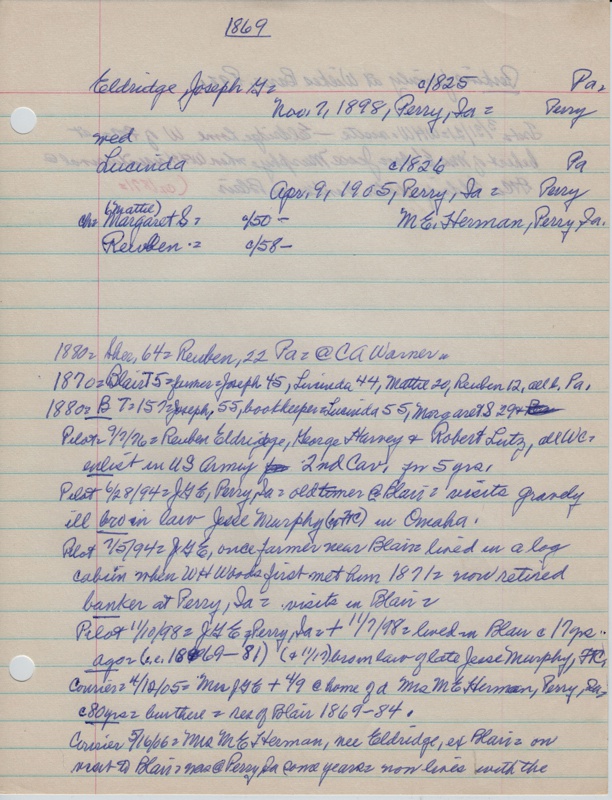 1869
Eldridge, Joseph G= c1825 Pa=
Nov. 7, 1898, Perry, Ia = Perry
wed
Lucinda c1826 Pa
Apr. 9, 1905, Perry, Ia = Perry
(Mattie)
ch= Margaret S= c/50- M.E. Herman, Perry, Ia.
Reuben = c/58-
1880= 64= Reuben, 22 Pa= @ CA Warner =
1870= Blair T5= farmer= Joseph 45, Lucinda 44, Mattie 20, Reuben 12, all b. Pa.
1880= B T=157= Joseph, 55, bookkeeper= Lucinda 55, Margaret S 29
Pilot= 9/7/76= Reuben Eldridge, George Harvey & Robert Lutz, all WC=
enlist in US Army 2nd Cav. for 5 yrs.
Pilot 6/28/94= JGE, Perry, Ia= oldtimer @ Blair= visits gravely
ill bro in law Jesse Murphy in Omaha.
Pilot 7/5/94= JGE, once farmer near Blair= lived in a log
cabin when WH Woods first met him 1871= now retired
banker at Perry, Ia= visits in Blair=
Pilot 11/10/98= JGE= Perry, Ia= + 11/7/98= lived in Blair c 17 yrs
ago= (i.e. 1869-81) (+ 11/17) bro in law of late Jesse Murphy, FC,
Courier= 4/12/05= Mrs JGE + 4/9 @ home of d Mrs M E Herman, Perry, Ia,
c80yrs= bur there= res of Blair 1869-84.
Courier 5/16/06= Mrs M E Herman, nee Eldridge, ex Blair= on
visit to Blair= was @ Perry, Ia some years= now lives with the